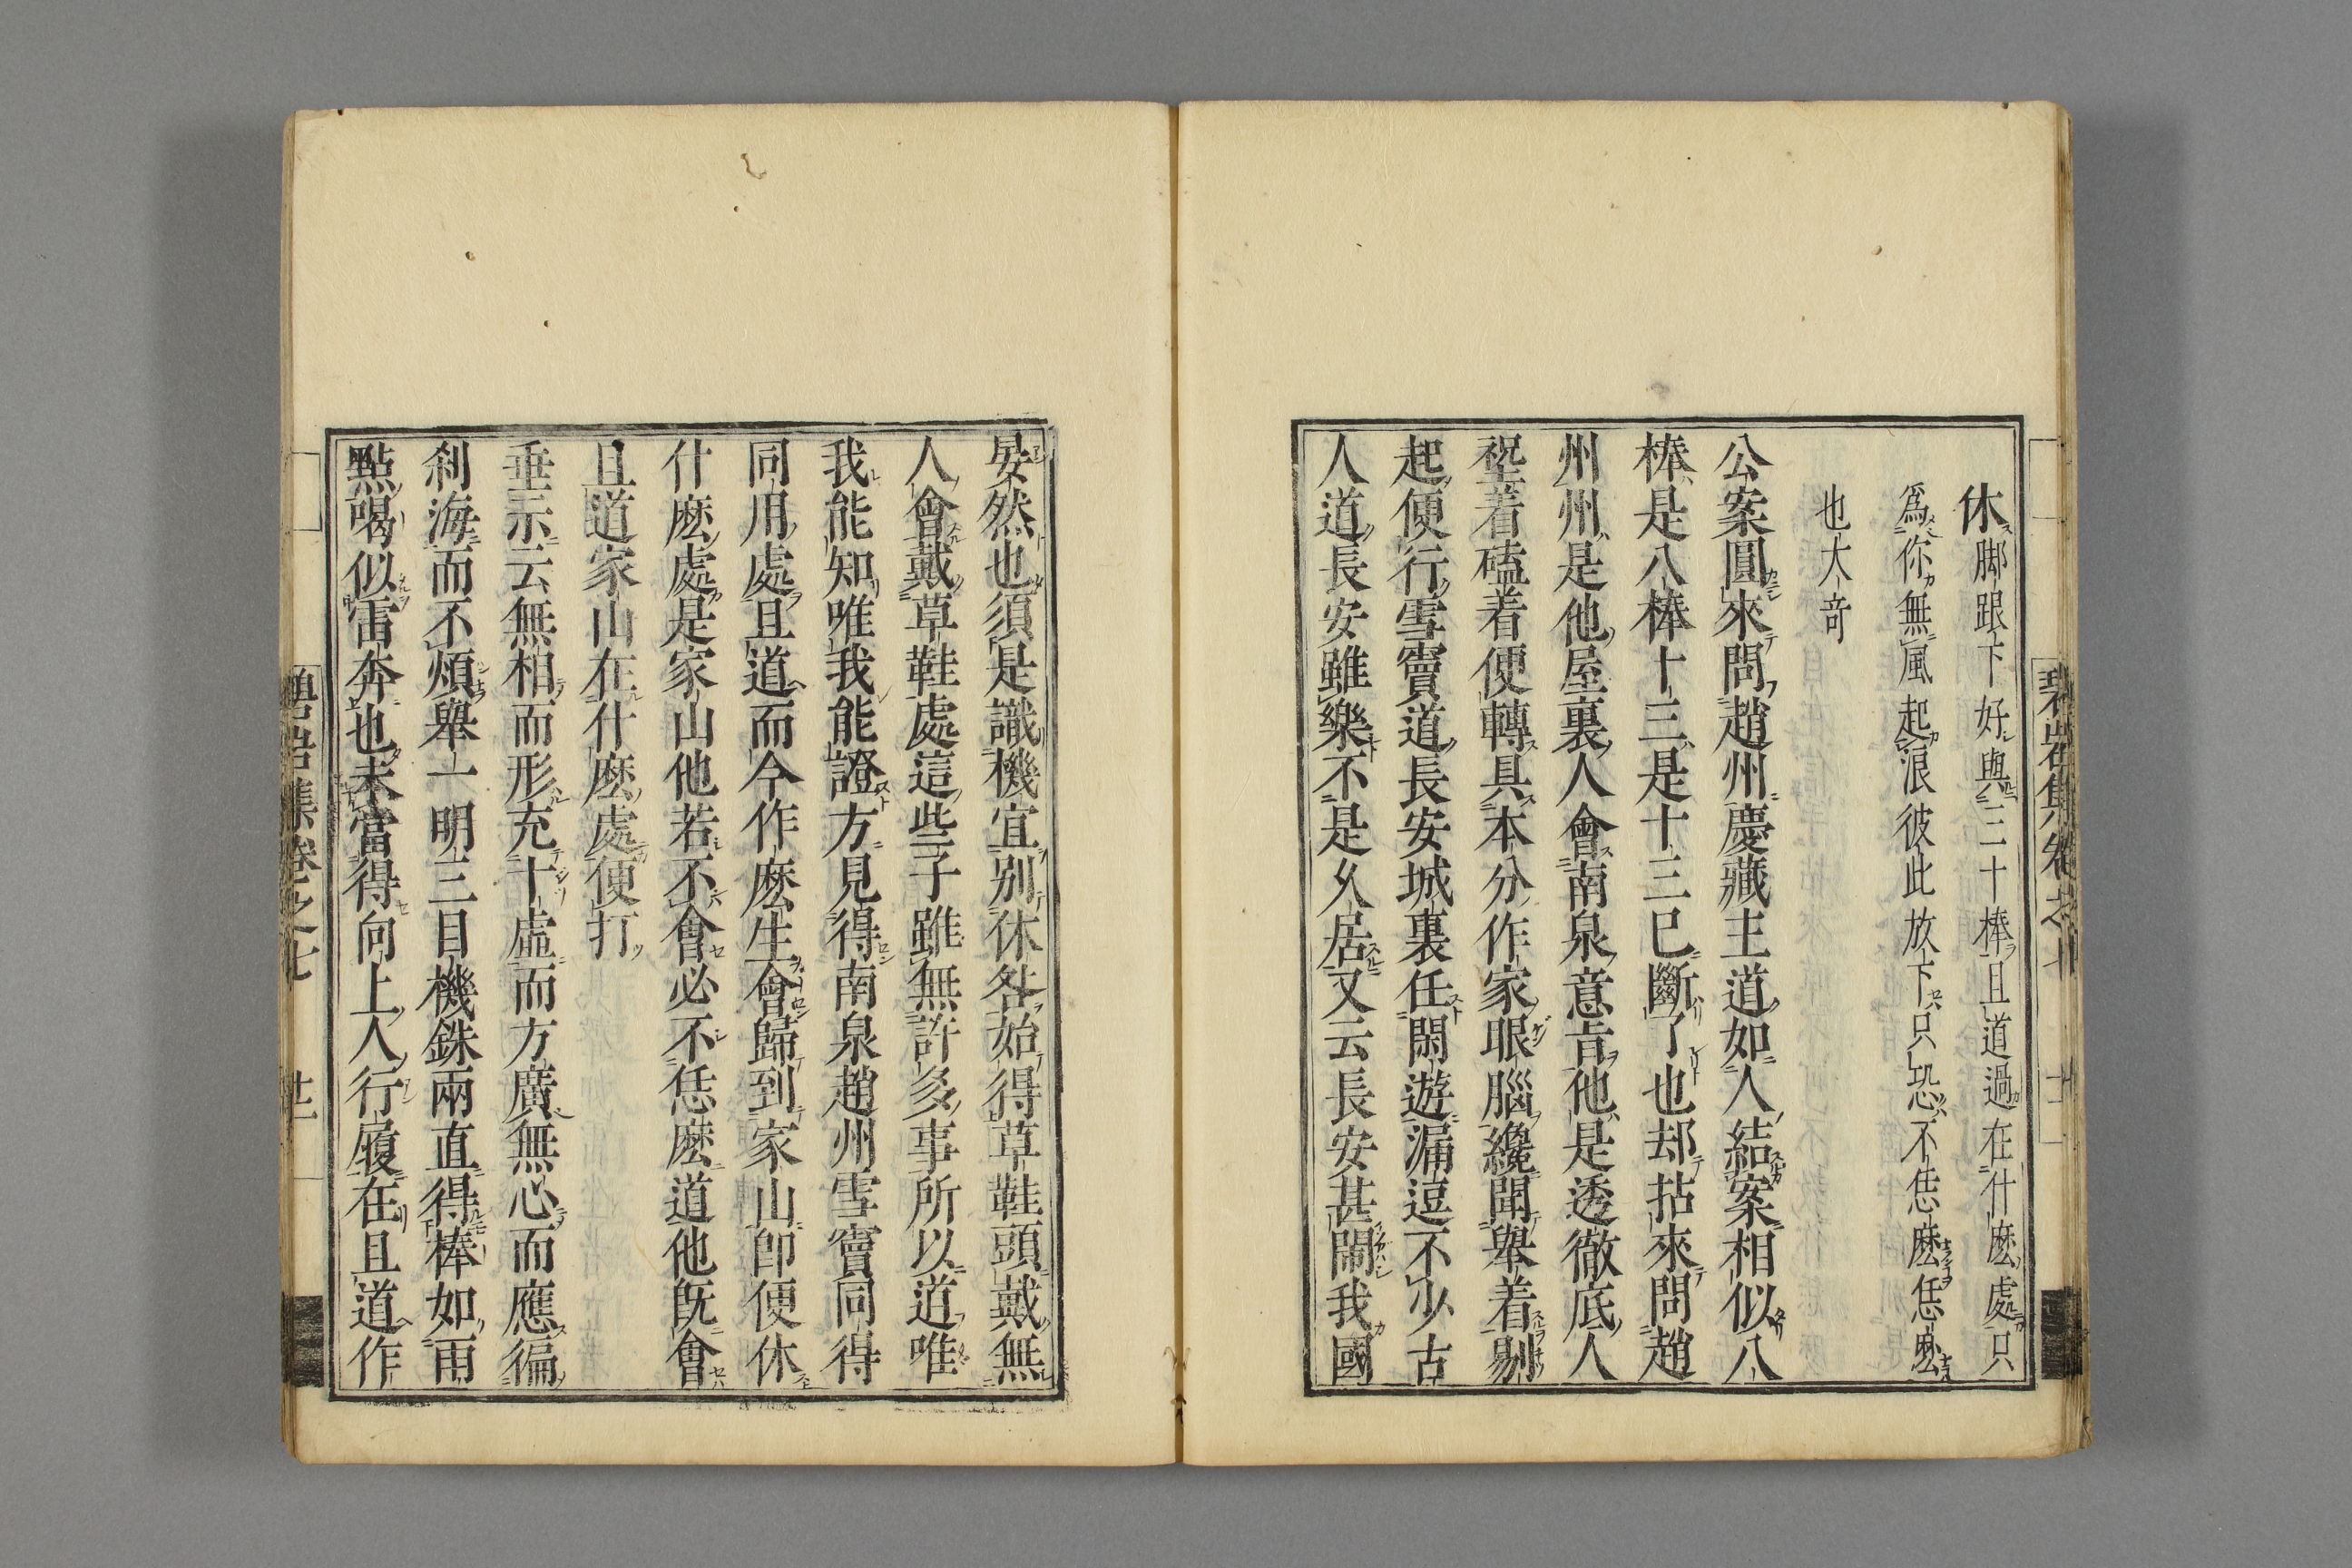 休脚跟下好與三十棒且道過在什麽處只
爲你無風起浪彼此放下只恐不恁麽恁麽
也大奇
公案圓來問趙州慶藏主道如人結案相似八
棒是八棒十三是十三已斷了也却拈來問趙
州州是他屋裏人會南泉意旨他是透徹底人
𡎺着磕着便轉具本分作家眼腦纔聞舉着剔
起便行雪竇道長安城裏任閑遊漏逗不少古
人道長安雖樂不是久居又云長安甚鬧我國
晏然也須是識機宜別休咎始得草鞋頭戴無
人會戴草鞋處這些子雖無許多事所以道唯
我能知唯我能證方見得南泉趙州雪竇同得
同用處且道而今作麽生會歸到家山卽便休
什麽處是家山他若不會必不恁麽道他旣會
且道家山在什麽處便打
垂示云無相而形充十虛而方廣無心而應徧
刹海而不煩舉一明三目機銖兩直得棒如雨
點喝似雷奔也未當得向上人行履在且道作
碧岩集卷之七